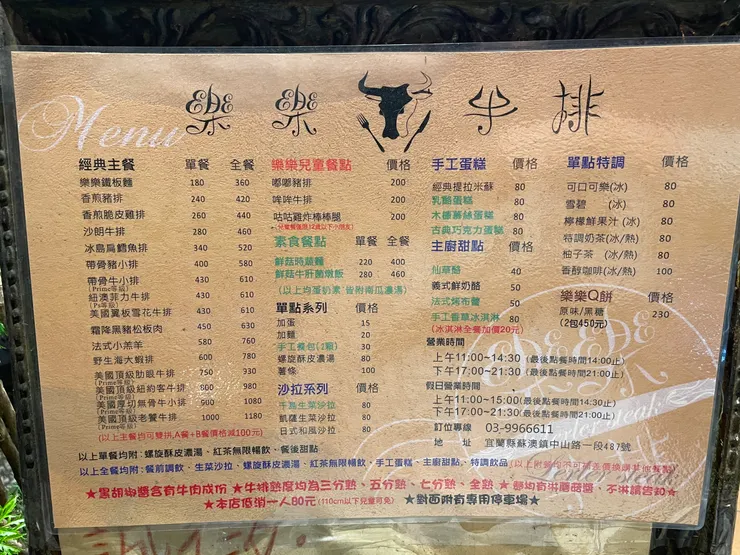 Menu
樂樂牛排
經典主餐 單餐 全餐
樂樂鐵板麵 180 360
香煎豬排 240 420
香煎脆皮雞排 260 440
沙朗牛排 280 460
冰島扁鱈魚排 340 520
帶骨豬小排 400 580
帶骨牛小排 430 610
(Prime等級)
紐澳菲力牛排 430 610
(Ps等級)
美國翼板雪花牛排 430 610
霜降黑豬松板肉 450 630
法式小羔羊 580 760
野生海大蝦排 680 860
美國頂級肋眼牛排 750 930
(Prime等級)
美國頂級紐約客牛排 800 980
(Prime等級)
美國厚切無骨牛小排 900 1080
(Prime等級)
美國頂級老饕牛排 1000 1180
(以上主餐均可雙拼,A餐+B餐價格減100元)
樂樂兒童餐點 價格
嘟嘟豬排 200
哞哞牛排 200
咕咕雞炸棒棒腿 200
(兒童餐僅限12歲以下小朋友)
素食餐點 單餐 全餐
鮮菇時蔬麵 220 400
鮮菇牛肝菌燉飯 280 460
(以上均為蛋奶素,皆附南瓜濃湯)
單點系列 價格
加蛋 15
加麵 20
手工餐包(1顆) 30
螺旋酥皮濃湯 80
薯條 100
沙拉系列 價格
千島生菜沙拉 80
凱薩生菜沙拉 80
日式和風沙拉 80
手工蛋糕 價格
經典提拉米蘇 80
乳酪蛋糕 80
木糖蕾絲蛋糕 80
古典巧克力蛋糕 80
主廚甜點 價格
仙草醋 40
義式鮮奶酪 50
法式烤布蕾 50
手工香草冰淇淋 80
(冰淇淋全餐加價20元)
營業時間
上午11:00~14:30 (最後點餐時間14:00止)
下午17:00~21:30 (最後點餐時間21:00止)
假日營業時間
上午11:00~15:00 (最後點餐時間14:30止)
下午17:00~21:30 (最後點餐時間21:00止)
訂位專線 03-9966611
地 址 宜蘭縣蘇澳鎮中山路一段487號
單點特調 價格
可口可樂(冰) 80
雪碧 (冰) 80
檸檬鮮果汁 (冰) 80
特調奶茶(冰/熱) 80
柚子茶 (冰/熱) 80
香醇咖啡(冰/熱) 100
樂樂Q餅 價格
原味/黑糖 230
(2包450元)
以上單餐均附:螺旋酥皮濃湯、紅茶無限暢飲、餐後甜點
以上全餐均附:餐前調飲、生菜沙拉、螺旋酥皮濃湯、紅茶無限暢飲、手工蛋糕、主廚甜點、特調飲品
★黑胡椒醬含有牛肉成份 ★牛排熟度均為三分熟、五分熟、七分熟、全熟 ★麵均有淋蘑菇醬,不淋請告知★
★本店低消一人80元(110cm以下兒童可免) ★對面附有專用停車場★